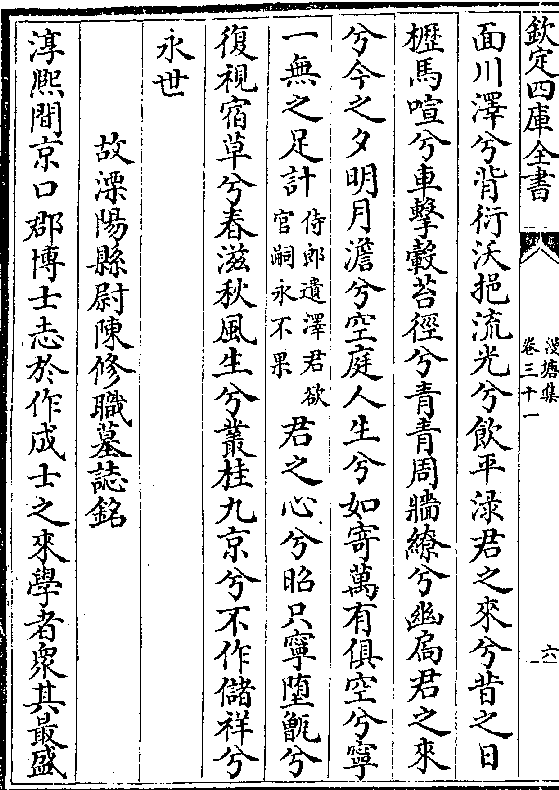 欽定四庫全書
漫塘集
卷三十一
六
面川澤兮背衍沃挹流光兮飲平渌君之來兮昔之日
櫪馬喧兮車擊轂苔徑兮青青周牆繚兮幽扄君之來
兮今之夕明月澹兮空庭人生兮如寄萬有俱空兮寧
一無之足計侍郎遺澤君欲官嗣永不果君之心兮昭只寧堕甑兮
復視宿草兮春滋秋風生兮叢桂九京兮不作儲祥兮
永世
故溧陽縣尉陳修職墓誌銘
淳熙間京口郡博士志於作成士之來學者衆其最盛